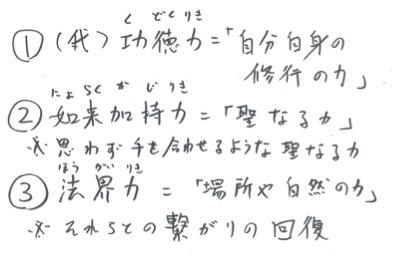 くどくりき
①(我)功徳力=「自分自身の
修行の力」
にょらくかじりき
②如来加持力=「聖なる力」
※思わず手を合わせるような聖なる力
ほうかいりき
③法界力=「場所や自然の力」
※それらとの繋がりの回復